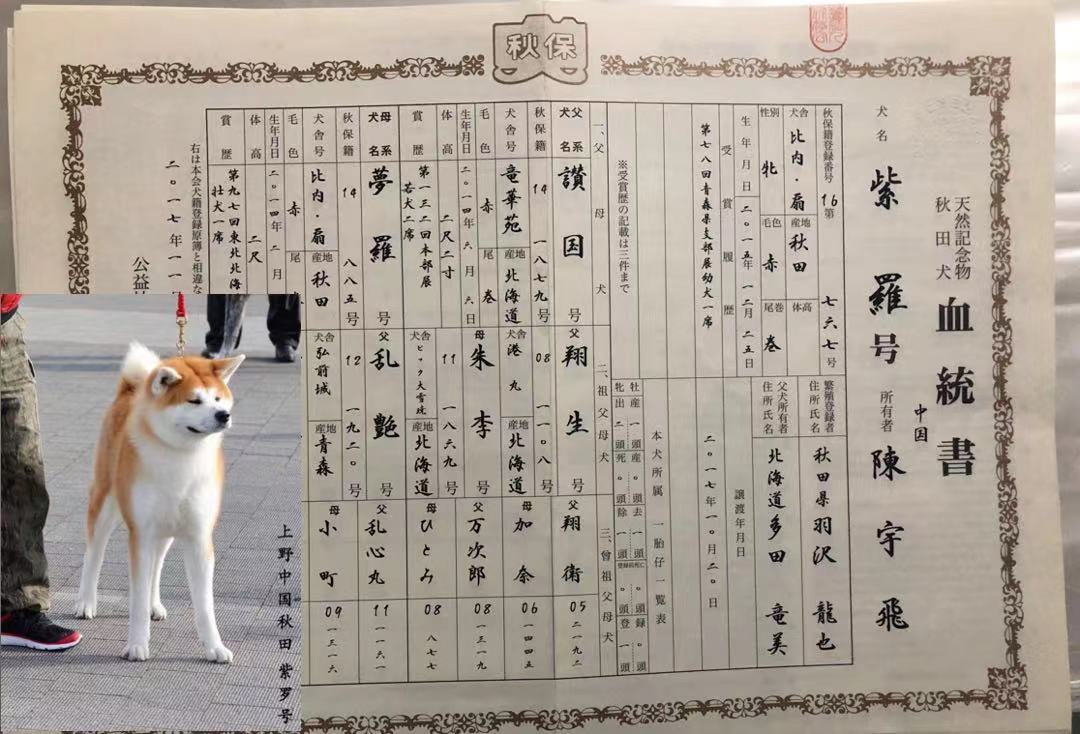 秋保
天然記念物
秋田犬
血統書
中国
犬名
紫羅号
所有者
陳宇飛
秋保籍登録番号
16第
七六七号
犬舎
比内・扇
産地
秋田
体高
性別
牝
毛色
赤
尾巻
巻
生年月日
二〇一五年一二月二五日
受賞履歴
第七八回青森県支部展幼犬一席
※受賞歴の記載は三件まで
繁殖登録者
住所氏名
秋田県羽沢龍也
父犬所有者
住所氏名
北海道多田竜美
譲渡年月日
二〇一七年一〇月二〇日
本犬所属一胎仔一覧表
牡産一頭
牝出二頭
産〇頭
死〇頭
去一頭
除一頭
登録前死亡
〇頭
〇頭
登録〇頭
一頭
一、父母犬
二、祖父母犬
三、曾祖父母犬
父系
犬名
讃国号
秋保籍
14
一八七九号
犬舎号
竜華苑
産地
北海道
毛色
赤
尾
巻
生年月日
二〇一四年六月六日
体高
二尺二寸
賞歴
第一三二回本部展
若犬二席
母系
犬名
夢羅号
秋保籍
14
八八五号
犬舎号
比内・扇
産地
秋田
毛色
赤
尾
生年月日
二〇一四年二月
体高
二尺
賞歴
第九七回東北北海
壮犬一席
右は本会犬籍登録原簿と相違な
二〇一七年一一
公益
父
翔生号
08
一一〇八号
犬舎
港丸
産地
北海道
母
朱李号
11
一八六九号
犬舎
ビック大雪焼
産地
北海道
父
乱艶号
12
一九二〇号
犬舎
弘前城
産地
青森
父
翔衛
05
二一九二
母
加奈
06
一四四五
父
万次郎
08
一三一九
母
ひとみ
08
八七七
父
乱心丸
11
一一六一
母
小町
09
一三一六
上野中国秋田 紫罗号